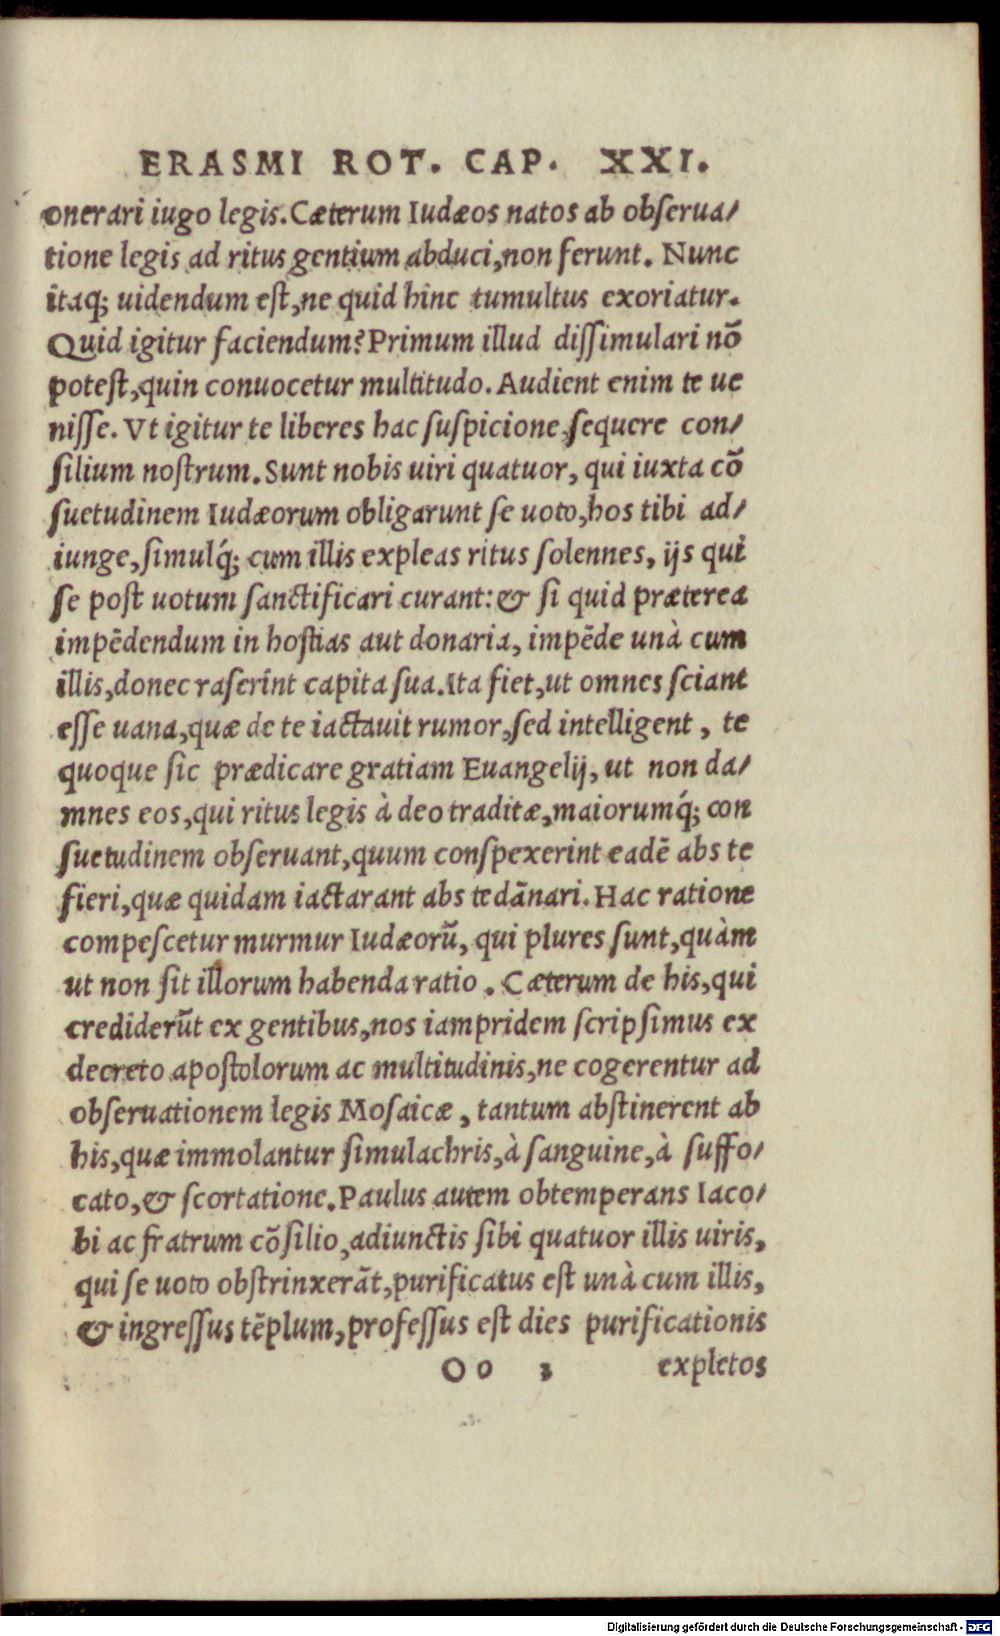 ERASMI ROT. CAP. XXI.
onerari iugo legis. Cæterum Iudæos natos ab obſerua/
tione legis ad ritus gentium abduci, non ferunt. Nunc
itaq; uidendum eſt, ne quid hinc tumultus exoriatur.
Quid igitur faciendum? Primum illud diſſimulari nō
poteſt, quin conuocetur multitudo. Audient enim te ue
niſſe. Vt igitur te liberes hac ſuſpicione, ſequere con/
ſilium noſtrum. Sunt nobis uiri quatuor, qui iuxta cō
ſuetudinem Iudæorum obligarunt ſe uoto, hos tibi ad/
iunge, ſimulq́; cum illis expleas ritus ſolennes, ijs qui
ſe poſt uotum ſanctificari curant: & ſi quid præterea
impēdendum in hoſtias aut donaria, impēde unà cum
illis, donec raſerint capita ſua. Ita fiet, ut omnes ſciant
eſſe uana, quæ de te iactauit rumor, ſed intelligent, te
quoque ſic prædicare gratiam Euangelij, ut non da/
mnes eos, qui ritus legis à deo traditæ, maiorumq́; con
ſuetudinem obſeruant, quum conſpexerint eadē abs te
fieri, quæ quidam iactarant abs te dānari. Hac ratione
compeſcetur murmur Iudæorū, qui plures ſunt, quàm
ut non ſit illorum habenda ratio. Cæterum de his, qui
crediderūt ex gentibus, nos iampridem ſcripſimus ex
decreto apoſtolorum ac multitudinis, ne cogerentur ad
obſeruationem legis Moſaicæ, tantum abſtinerent ab
his, quæ immolantur ſimulachris, à ſanguine, à ſuffo/
cato, & ſcortatione. Paulus autem obtemperans Iaco/
bi ac fratrum cōſilio, adiunctis ſibi quatuor illis uiris,
qui ſe uoto obſtrinxerāt, purificatus eſt unà cum illis,
& ingreſſus tēplum, profeſſus eſt dies purificationis
Oo 3 expletos
Digitalisierung gefördert durch die Deutsche Forschungsgemeinschaft - DFG